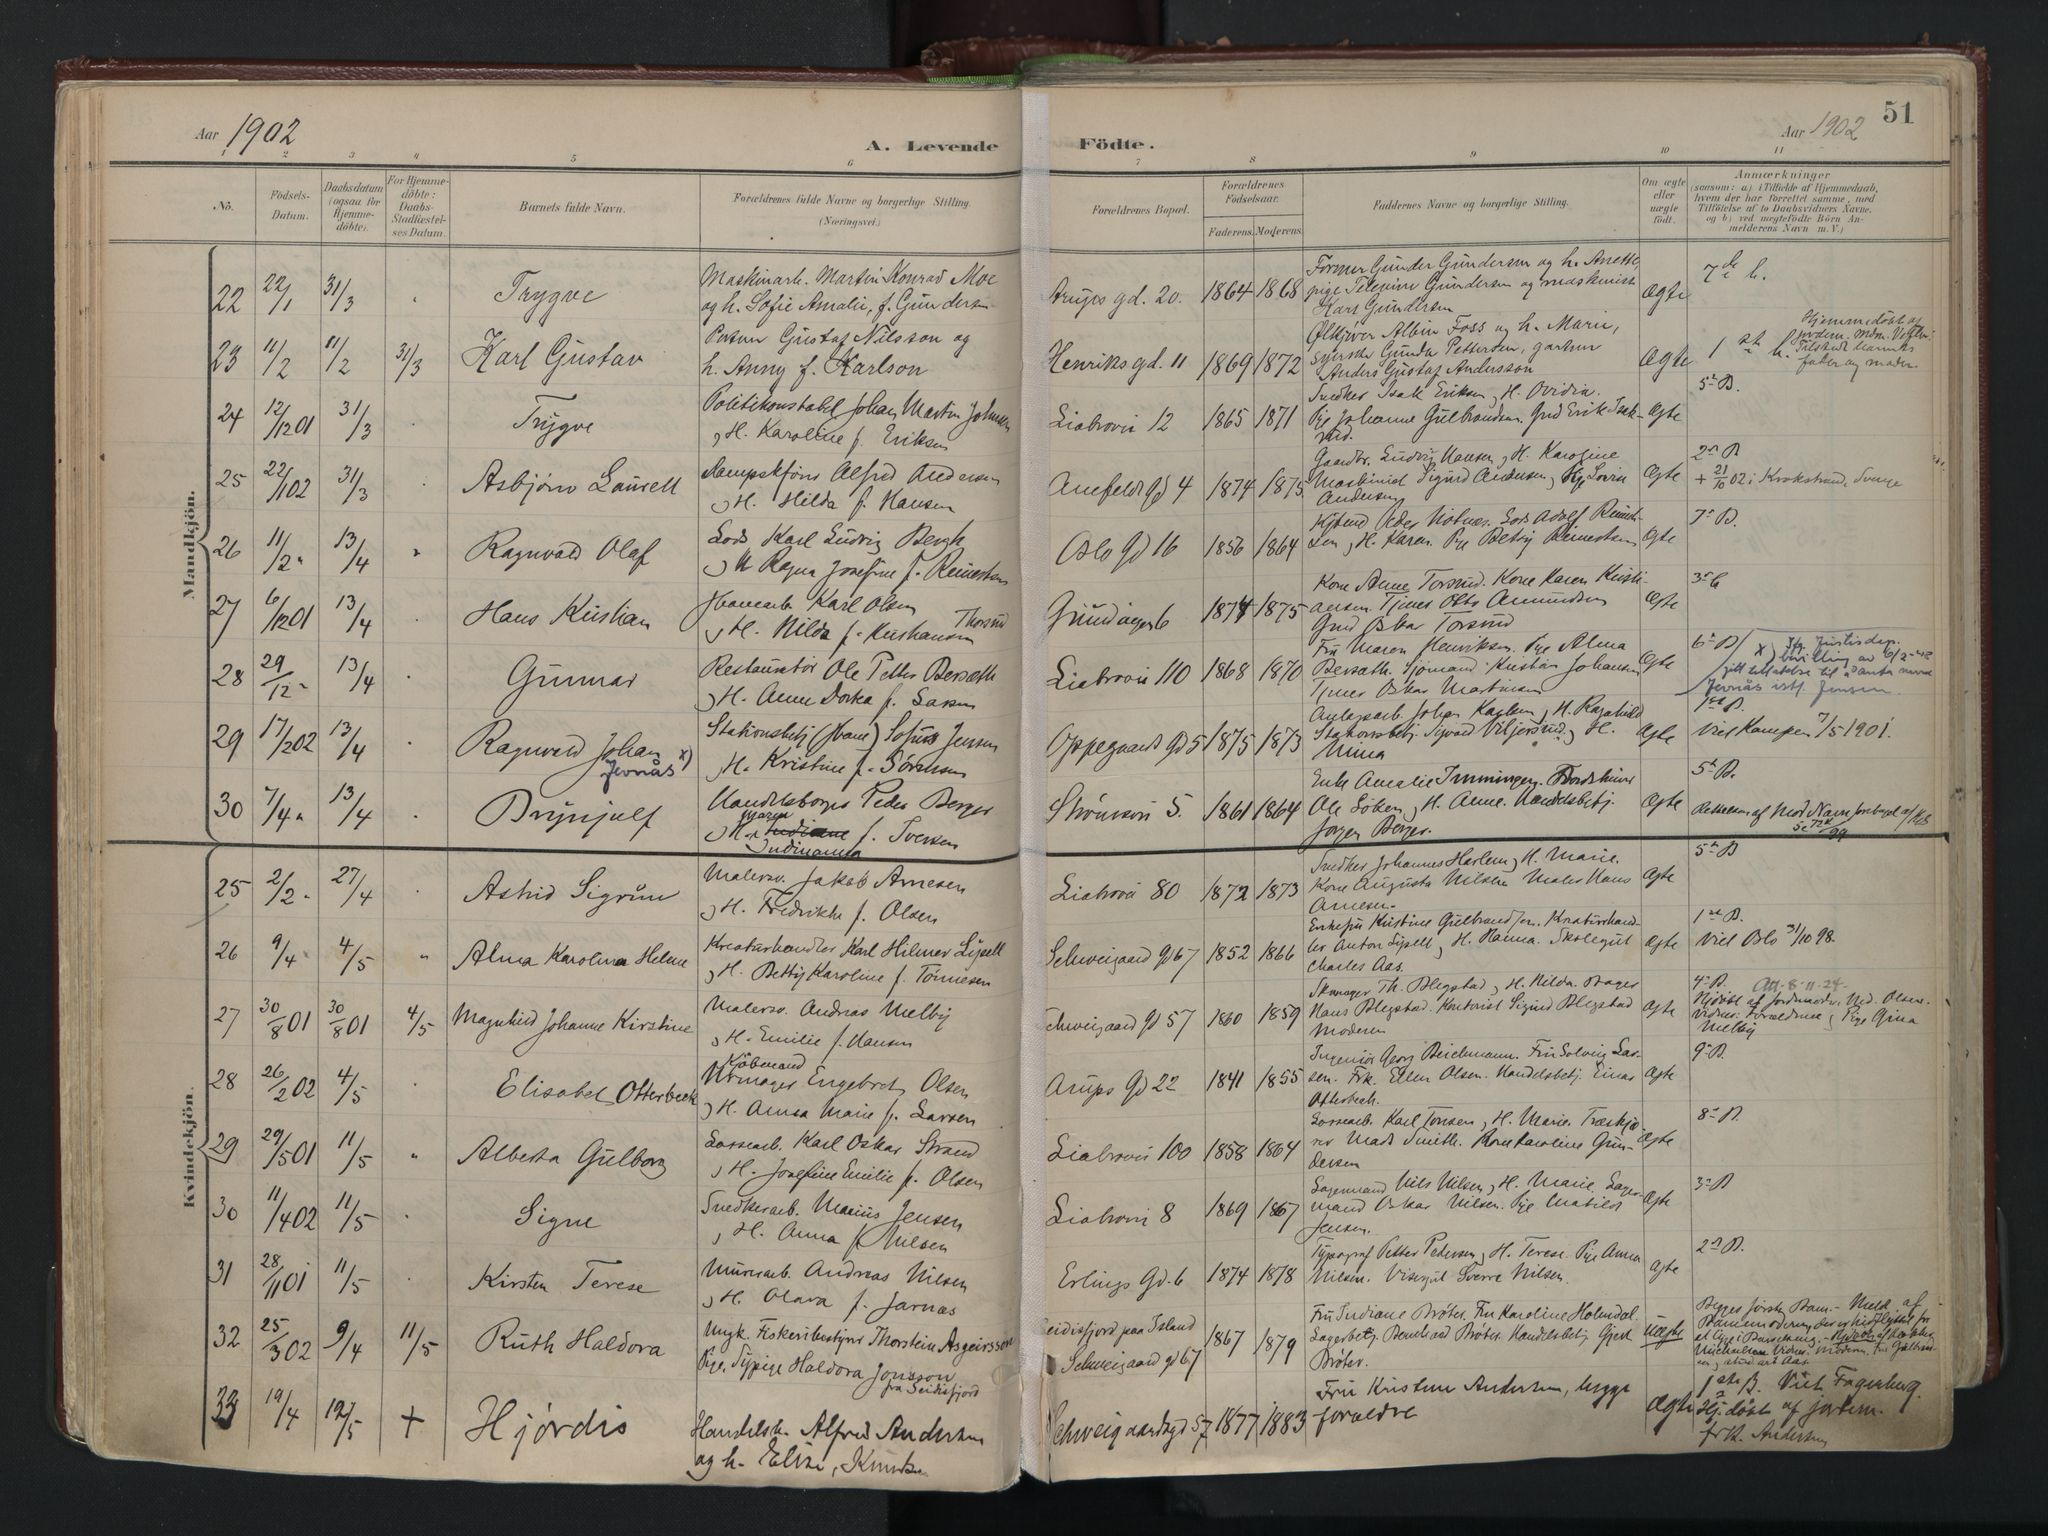 Aar 1902
A. Levende
Födte.
Aar 1902
51
1 2 3 4 5 6 7 8 9 10 11
Nö.
Födsels-
Datum.
Daabsdatum
(ogsaa for
Hjemme-
döbte).
For Hjemme-
döbte:
Daabs-
Stadfæstel-
ses Datum.
Barnets fulde Navn.
Forældrenes fulde Navne og borgerlige Stilling.
(Næringsvei.)
Forældrenes Bopæl.
Forældrenes
Födselsaar.
Faderens. Moderens.
Faddernes Navne og borgerlige Stilling.
Om ægte
eller
uægte
født.
Anmærkninger
(saasom: a) i Tilfælde af Hjemmedaab,
hvem der har forrettet samme, med
Tilföielse af to Daabsvidners Navne,
og b) ved uægtefödte Börn An-
melderens Navn m. V.)
Mandkjön.
22 22/1 31/3 Trygve
Maskinarb. Martin Konrad Moe
og h. Sofie Amalie, f. Gundersen
Arups gd. 20. 1864 1868
Former Gunder Gundersen og h. Anette,
pige Gundersen og maskinist
Hars Gundersen
Ægte 7de b.
23 11/2 11/2 31/3 Karl Gustav
Gustaf Nilsson og
h. Anny f. Karlson
Henriks gd. 11 1869 1872
Ølkjører Albin Foss og h. Marie,
syerske Gunda Pettersen, gartner
Anders Gustaf Andersson
Ægte 1ste b.
Hjemmedöbt af
jordem.
fader og moder
24 12/12 01 31/3 Trygve
Politikonstabel Johan Martin Johnsen
og H. Karoline f. Eriksen
Liabrovei 12 1865 1871
Snedker Isak Eriksen og H. Ovidia.
Pige Johanne Gulbrandsen. Gmd Erik Isak-
sen.
Ægte 5te B.
25 22/1 02 31/3 Asbjørn Laurell
Alfred Andersen
og H. Hilda f. Hansen
Anefeldts gd 4 1874 1875
Gaardbr. Ludvig Hansen og H. Karoline
Maskinist Sigurd Andersen, Pige Lovise
Andersen
Ægte 2n B
+ 21/10 02 i Krokstrand, Sverige
26 11/2 " 13/4 " Ragnvald Olaf
Lods Karl Ludvig Bergh
og H Ragna Josefine f. Reinertsen
Oslo Gd 16 1856 1864
Peder Lods Adolf Reinert-
sen og H. Karen. Pige Betsy Reinertsen
Ægte 7n B.
27 6/12 01 13/4 Hans Kristian
Karl Olsen Thorsrud
og H. Hilda f. Kristiansen
Grindveien 6 1874 1875
Kone Anne Torsrud. Kone Karen Kristi-
ansen. Tjener Otto Amundsen
Gmd Oskar Torsrud
Ægte 3n B
28 29/12 - 13/4 Gunnar
Restauratør Ole Petter Bersæth
og H. Anne Dorka f. Larsen
Liabrovei 110 1868 1870
Fru Maren Henriksen. Pige Alma
Bersæth. Sjømand Kristian Johansen
Tjener Oskar Martinsen
Ægte 6te B
x) Iflg. Justisdep.
bevilling av 6/2-42
gitt tillatelse til å anta navnet
Jernås istf. Jensen.
29 17/2 02 13/4 Ragnvald Johan x)
Jernås
Stationsbetj (Bane) Sofus Jensen
og H. Kristine f. Sørensen
Oppegaards gd 5 1875 1873
Anlægsarb. Johan Karlsen og H. Ragnhild
Stationsbetj. Sigvard og H.
Mina
Ægte 1ste B.
Viet Kampen 7/5 1901.
30 7/4 " 13/4 Brynjulf
Handelsborger Peder Berger
og H. Maren Indiane f. Iversen
Indianna
Strømsvei 5. 1861 1864
Enke Amalie Imminger.
Ole Loberg og H. Anne. Handelsbetj.
Jørgen Berger.
Ægte 5te B.
Kvindekjön.
25 2/2 - 27/4 Astrid Sigrun
Malersv. Jakob Arnesen
og H. Fredrikke f. Olsen
Liabrovei 80 1872 1873
Snedker Johannes Harlem og H. Marie.
Kone Augusta Nilsen. Maler Hans
Arnesen.
Ægte 5te B
26 9/4 4/5 " Alma Karolina Helene
Kreaturhandler Karl Hilmer Lysell
og H. Betty Karoline f. Tønnesen
Schweigaard gd 67 1852 1866
Enkefru Kristine Gulbrandsen. Kreaturhand-
ler Anton Lysell og H. Hanna. Skolegut
Charles Aas.
Ægte 1ste B.
Viet Oslo 31/10 98.
27 30/8 01 30/8 01 4/5 Magnhild Johanne Kirstine
Malersv. Andreas Melby
og H. Emilie f. Hansen
Schweigaard gd 57 1860 1859
Skomager Th. Blegstad og H. Hilda. Bager
Hans Blegstad. Kontorist Sigurd Blegstad
Moderen
Ægte 4n B. Att. 8-11-24.
Hjdöbt af Jordmoder Olsen.
Vidner Forældrene og Pige Gina
Melby
28 26/2 02 4/5 Elisabet Otterbeck
Kjøbmand
Urmager Engebret Olsen
og H. Anna Marie f. Larsen
Arups Gd 22 1841 1855
Ingeniør Georg Beichmann. Fru Solveig Lar-
sen. Frk. Ellen Olsen. Handelsbetj. Einar
Otterbech.
Ægte 9n B.
29 29/5 01 11/5 " Alberta Gulborg
Lossearb. Karl Oskar Strand
og H. Josefine Emilie f. Olsen
Liabrovei 100 1858 1864
Lossearb. Karl Tonsen og H. Marie.
Mads Smith. Kone Karoline Gun-
dersen
Ægte 8n B.
30 11/4 02 11/5 Signe
Snedkerarb. Marius Jensen
og H. Anna f. Nilsen
Liabrovei 8 1869 1867
Lagermand Nils Nilsen og H. Marie. Lager-
mand Oskar Nilsen. Pige Matilde
Jensen.
Ægte 3n B
31 28/11 01 11/5 Kirsten Terese
Murerarb. Andreas Nilsen
og H. Olava f. Jarnæs
Erlings Gd. 6 1874 1878
Typograf Petter Pedersen og H. Terese. Pige Anna
Nilsen. Visergut Sverre Nilsen.
Ægte 2n B.
32 25/3 02 9/4 11/5 Ruth Haldora
Ungk. Fiskeribestyrer Thorstein Asgeirsson
Pige, Sypige Haldora Jonsson
fra Seidisfjord
Seidisfjord paa Island
Schweigaard gd 67
1867 1879
Fru Indiane Brøter. Fru Karoline Holmdal.
Lagerbetj. Bernhard Brøter. Handelsbetj. Gjert
Brøter.
Uægte
Begges første Barn.
33 19/4 19/5 + Hjørdis
Handelsb. Alfred Andersen
og h. Elise,
Schweigaardsgd 57 1877 1883
Fru Kristine Andersen, begge
forældre
Ægte 1ste B. Viet Fagerborg.
Hj. döbt af jordem.
frk. Andersen